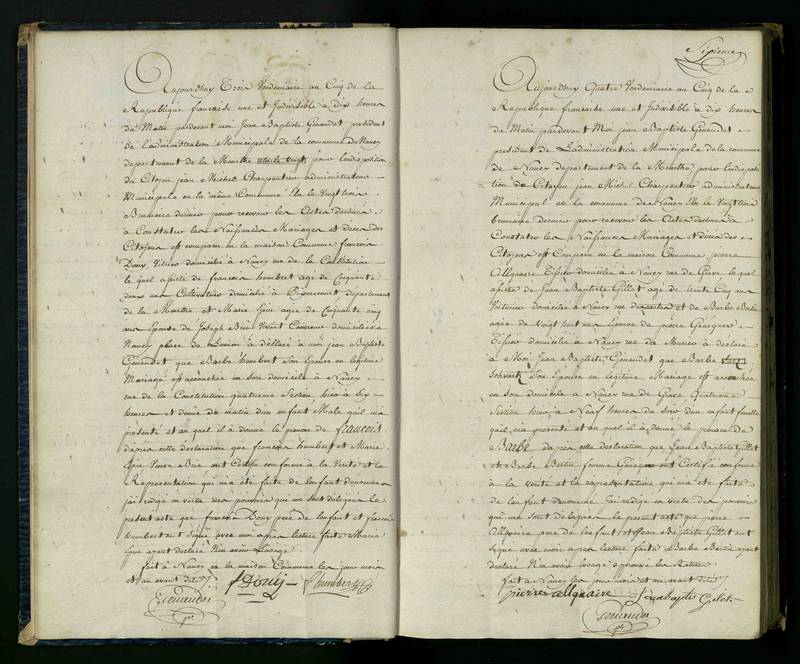 Aujourdhuy Trois Vendemiaire an Cinq de la
Republique francaise une et Indivisible à dix heures
du Matin pardevant moi Jean Baptiste Genaudet président
de l'administration Municipale de la commune de Nancy
departement de la Meurthe pour
du Citoyen jean Michel Charpentier administrateur
Municipale en la même Commune Elu le Vingt trois
Brumaire dernier pour recevoir les Actes destinés
a Constater les Naissances Mariages et deces des
Citoyens est comparu en la maison Commune francois
Doux, Vitrier domicilié à Nancy rue de la Constitution
lequel assisté de francois humbert agé de Cinquante
deux ans Cultivateur domicilié à departement
de la Meurthe et Marie agée de Cinquante cinq
ans Epouse de Joseph domiciliée a
Nancy place de à déclaré à moi jean Baptiste
Genaudet que Barbe humbert Son Epouse en legitime
Mariage est accouchée en son domicile à Nancy
rue de la Constitution quatrieme Section hier à Six
heures et demie du matin d'un enfant Male quil m'a
presenté et auquel il à donné le prenom de francois
d'apres cette declaration que francois humbert et Marie
ont Certifié conforme à la Verité et la
Representation qui m'a été faite de lenfant denommé
jai redigé en vertu des pouvoirs qui me sont delegués le
present acte que francois Doux pere de lenfant et francois
humbert ont Signé avec moi apres lecture faite Marie
ayant declaré N'en avoir l'usage
fait à Nancy en la maison Commune les jour mois
et an avant dits
f Doux humbert
Genaudet
pt.
Sixieme
Aujourdhuy Quatre Vendemiaire an Cinq de la
Republique francaise une et Indivisible à dix heures
du Matin pardevant Moi jean Baptiste Genaudet
president de L'administration Municipale de la commune
de Nancy departement de la Meurthe pour
du Citoyen jean Michel Charpentier administrateur
Municipal en la commune de Nancy Elu le Vingt trois
brumaire Dernier pour recevoir les Actes destinés à
Constater les Naissances Mariages et décès des
Citoyens est Comparu en la maison Commune pierre
Allquaire domicilié à Nancy rue de Greve lequel
assisté de Jean Baptiste Gillet agé de trente Cinq ans
Voiturier domicilié à Nancy rue et de Barbe Bertin
agée de Vingt huit ans Epouse de pierre
domicilié à Nancy rue du à declaré
à Moi Jean Baptiste Genaudet que Barbe
Schvartz Son Epouse en legitime Mariage est accouchée
en son domicile à Nancy rue de Greve Quatrieme
Section hier à Neuf heures du Soir d'un enfant femelle
quil m'a presenté et au quel il à donné le prenom de
Barbe dapres cette declaration que Jean Baptiste Gillet
et Barbe Bertin femme ont Certifié conforme
à la verité et la representation qui m'a été faite
de lenfant denommé Jai redigé en vertu des pouvoirs
qui me sont délégués le present acte que pierre
Allquaire pere de lenfant et Jean Baptiste Gillet ont
Signé avec moi apres lecture faite Barbe Bertin ayant
declaré N'en avoir l'usage approuvé les Ratures
fait à Nancy les jour mois et an avant dits
pierre allquaire Jean baptis Gilet
Genaudet
pt.